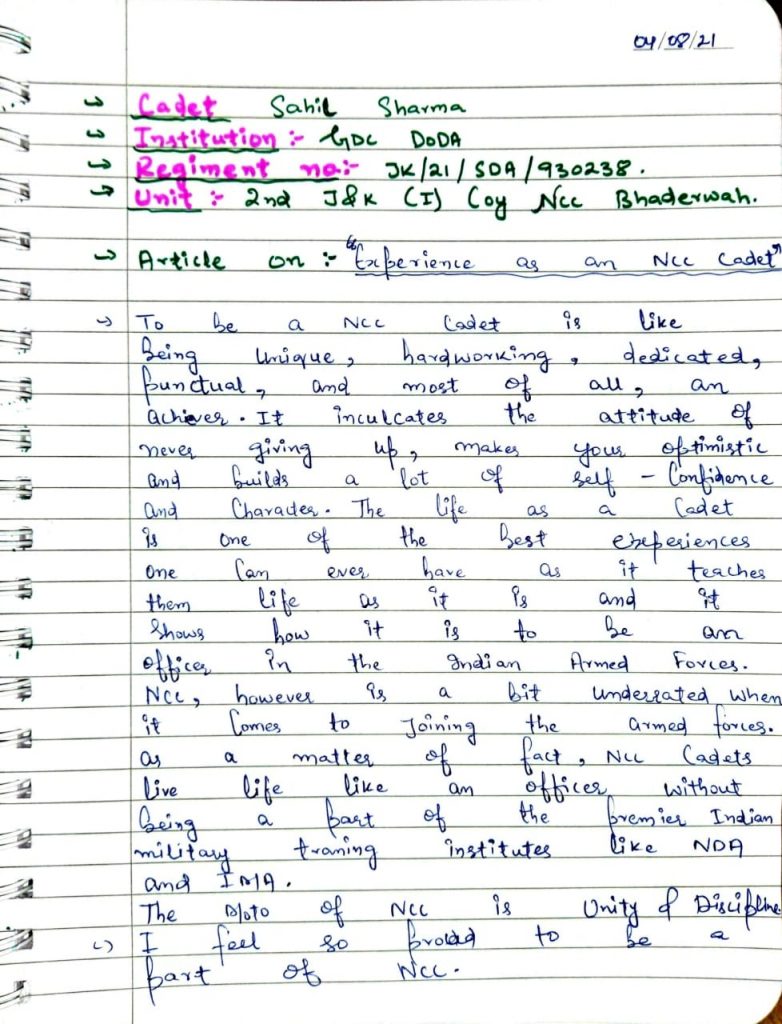 04/08/21
→ Cadet Sahil Sharma
→ Institution :- GDC DODA
→ Regiment no:- JK/21/SDA/930238.
→ Unit :- 2nd J&K (I) Coy Ncc Bhaderwah.
→ Article on :- "Experience as an NCC Cadet"
→ To be a NCC Cadet is like
Being Unique, hardworking, dedicated,
punctual, and most of all, an
achiever. It inculcates the attitude of
never giving up, makes your optimistic
and builds a lot of self-Confidence
and Charader. The life as a Cadet
is one of the best experiences
one Can ever have as it teaches
them life as it is and it
Shows how it is to be an
officer in the Indian Armed Forces.
NCC, however is a bit underrated when
it Comes to Joining the armed forces.
as a matter of fact, NCC Cadets
live life like an officer without
being a part of the premier Indian
military traning institutes like NDA
and IMA.
The Moto of NCC is Unity & Discipline
→ I feel so proud to be a
part of NCC.